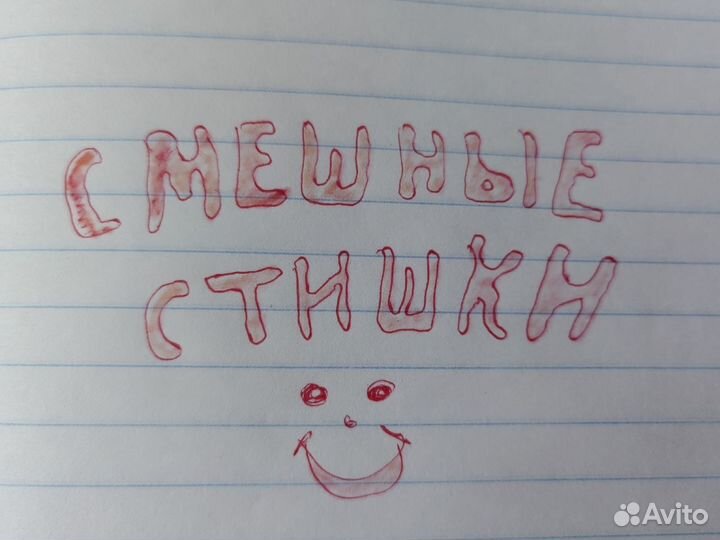 СМЕШНЫЕ
СТИШКИ
Avito